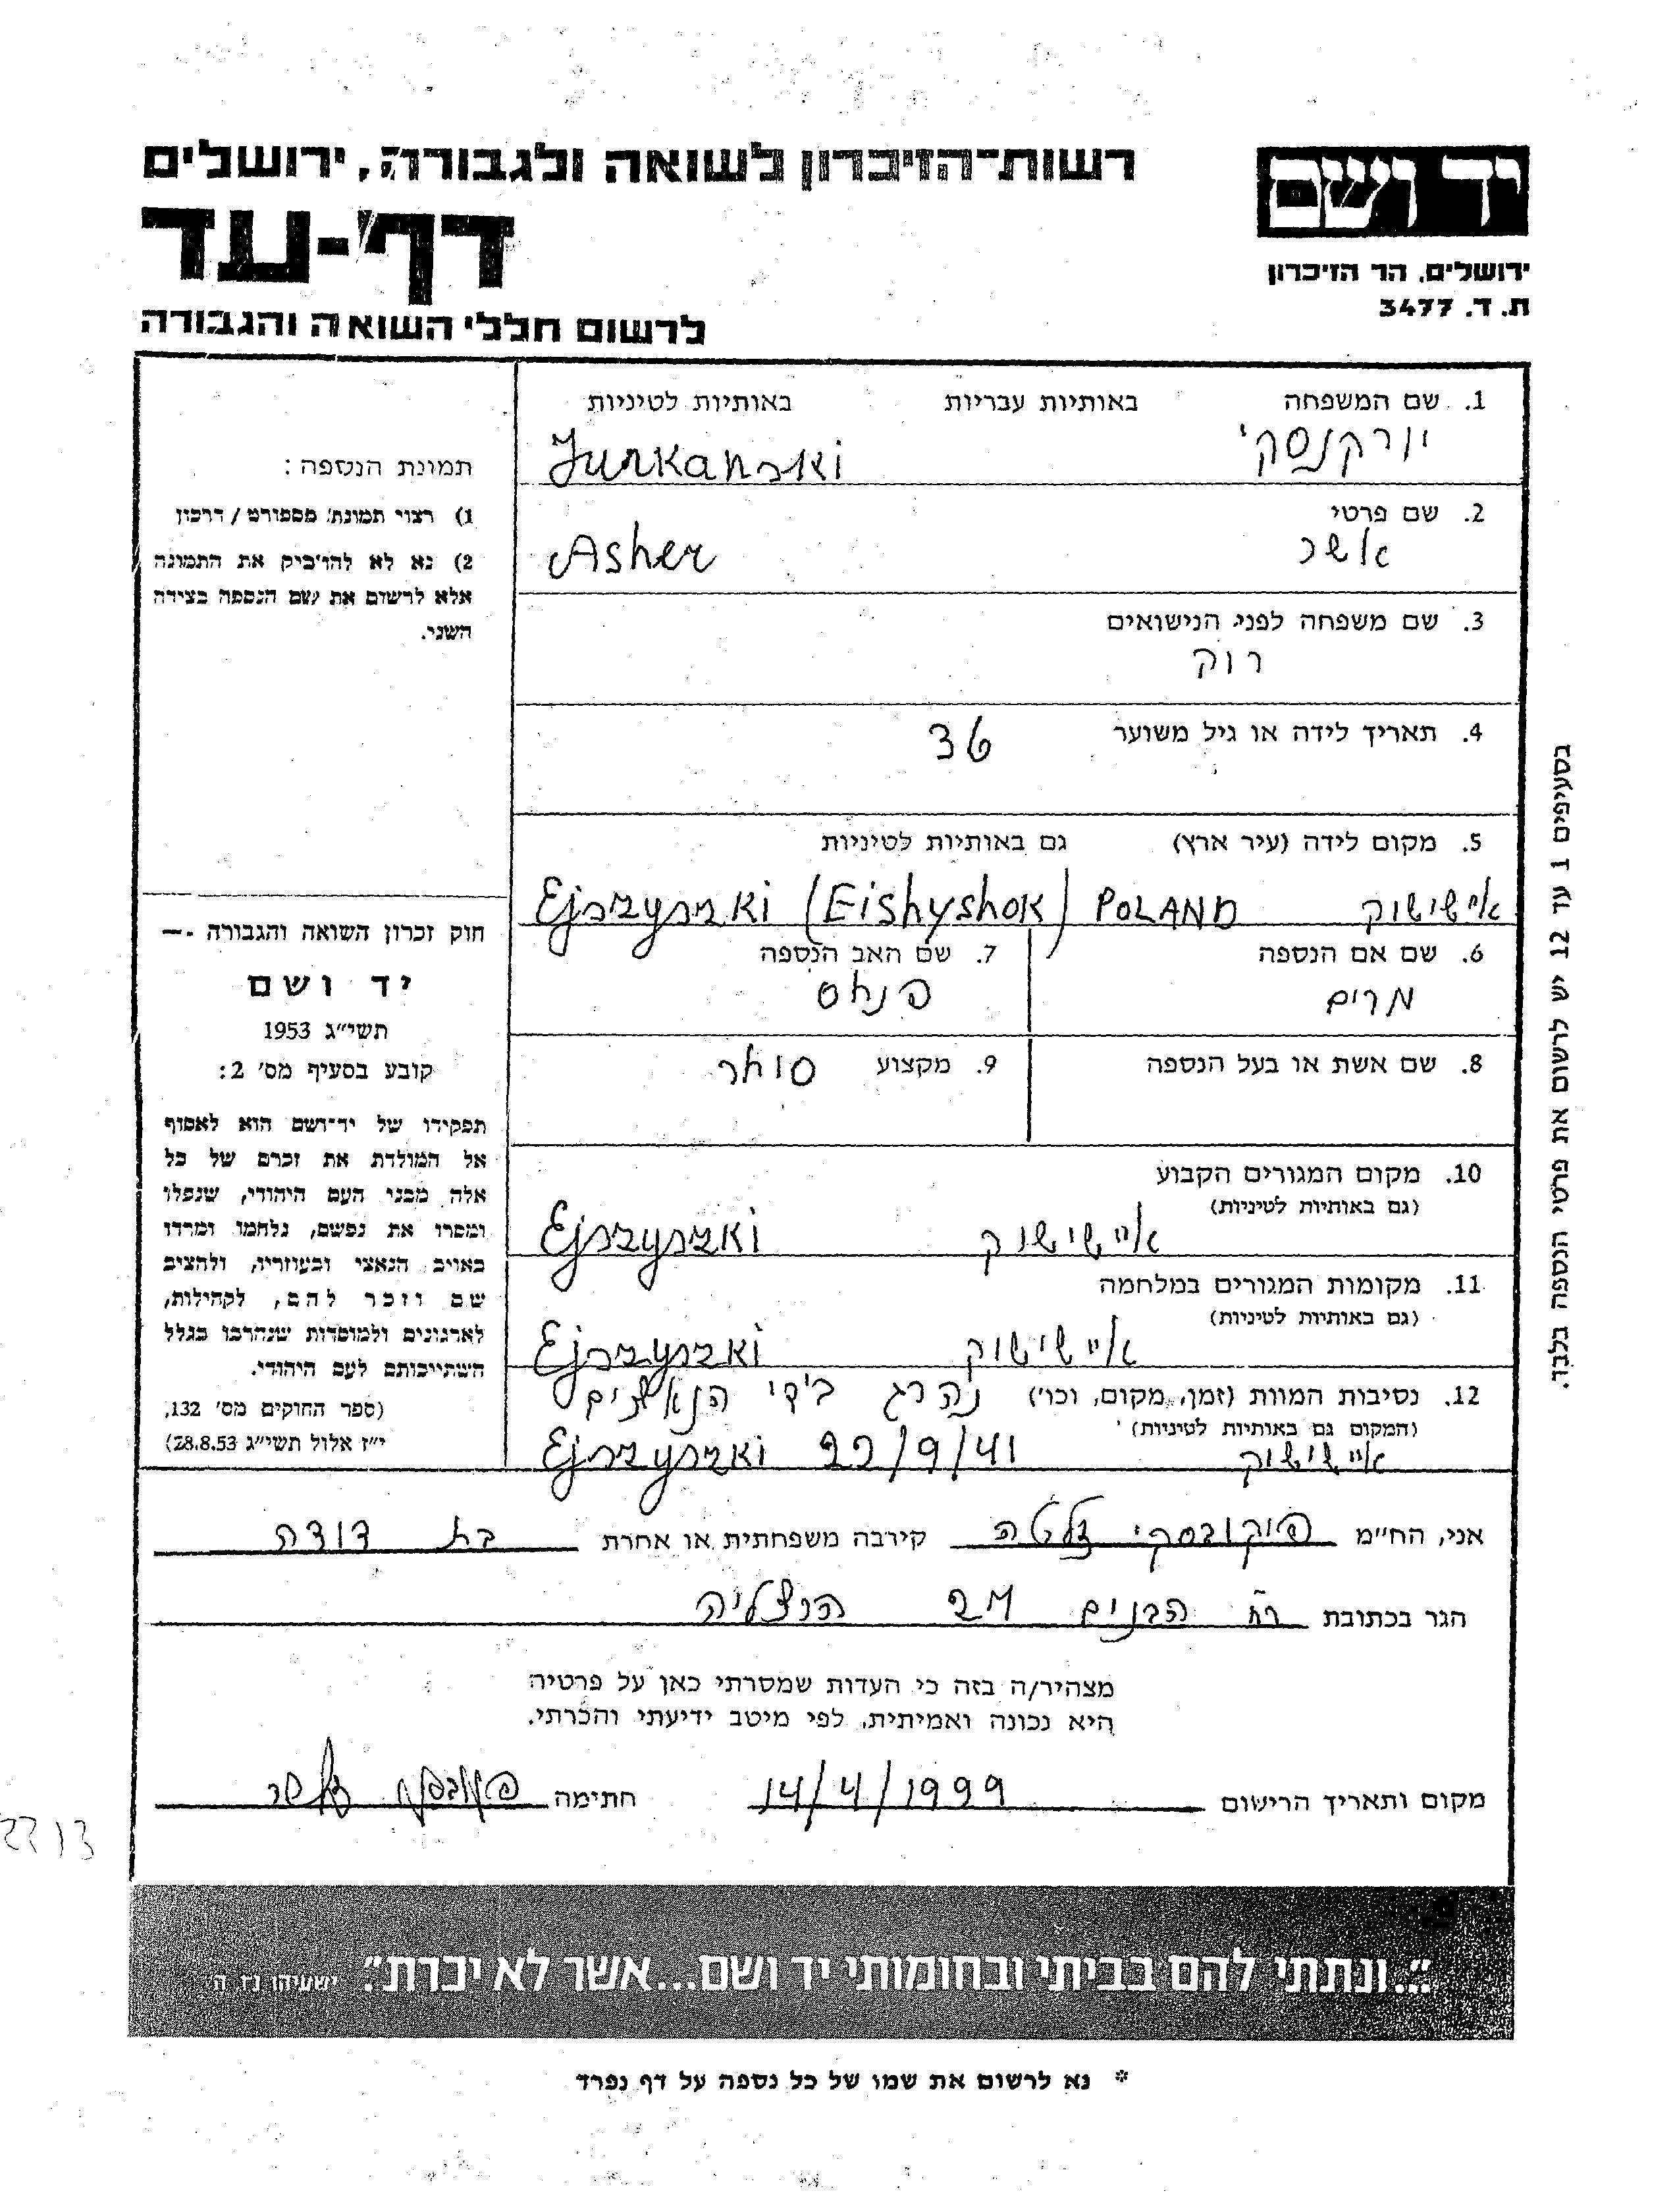 רשות־הזיכרון לשואה ולגבורה, ירושלים
דף-עד
לרשום חללי השואה והגבורה
יד ושם
ירושלים, הר הזיכרון
ת. ד. 3477
1. שם המשפחה באותיות עבריות באותיות לטיניות
יורקנסקי Jurkanski
2. שם פרטי
אשר Asher
3. שם משפחה לפני הנישואים
רווק
4. תאריך לידה או גיל משוער 36
5. מקום לידה (עיר ארץ) גם באותיות לטיניות
איישישוק Ejszyszki (Eishyshok) POLAND
6. שם אם הנספה 7. שם האב הנספה
מרים פנחס
8. שם אשת או בעל הנספה 9. מקצוע סוחר
10. מקום המגורים הקבוע
(גם באותיות לטיניות)
איישישוק Ejszyszki
11. מקומות המגורים במלחמה
(גם באותיות לטיניות)
איישישוק Ejszyszki
12. נסיבות המוות (זמן, מקום, וכו') נהרג בידי הנאצים
(המקום גם באותיות לטיניות)
איישישוק 22/9/41 Ejszyszki
תמונת הנספה:
1) רצוי תמונת פספורט / דרכון
2) נא לא להדביק את התמונה
אלא לרשום את שם הנספה בצידה
השני.
חוק זכרון השואה והגבורה —
יד ושם
תשי״ג 1953
קובע בסעיף מס׳ 2:
תפקידו של יד־ושם הוא לאסוף
אל המולדת את זכרם של כל
אלה מבני העם היהודי, שנפלו
ומסרו את נפשם, נלחמו ומרדו
באויב הנאצי ובעוזריו, ולהציב
שם וזכר להם, לקהילות,
לארגונים ולמוסדות שנהרבו בגלל
השתייכותם לעם היהודי.
(ספר החוקים מס׳ 132,
י״ז אלול תשי״ג 28.8.53)
בסעיפים 1 עד 12 יש לרשום את פרטי הנספה בלבד.
אני, הח״מ פיקובסקי זלטה קירבה משפחתית או אחרת בת דודה
הגר בכתובת רח הבנים 27 הרצליה
מצהיר/ה בזה כי העדות שמסרתי כאן על פרטיה
היא נכונה ואמיתית, לפי מיטב ידיעתי והכרתי.
מקום ותאריך הרישום 14/4/1999 חתימה
2213
״...ונתתי להם בביתי ובחומותי יד ושם...אשר לא יכרת״. ישעיהו נ״ו ה׳
* נא לרשום את שמו של כל נספה על דף נפרד